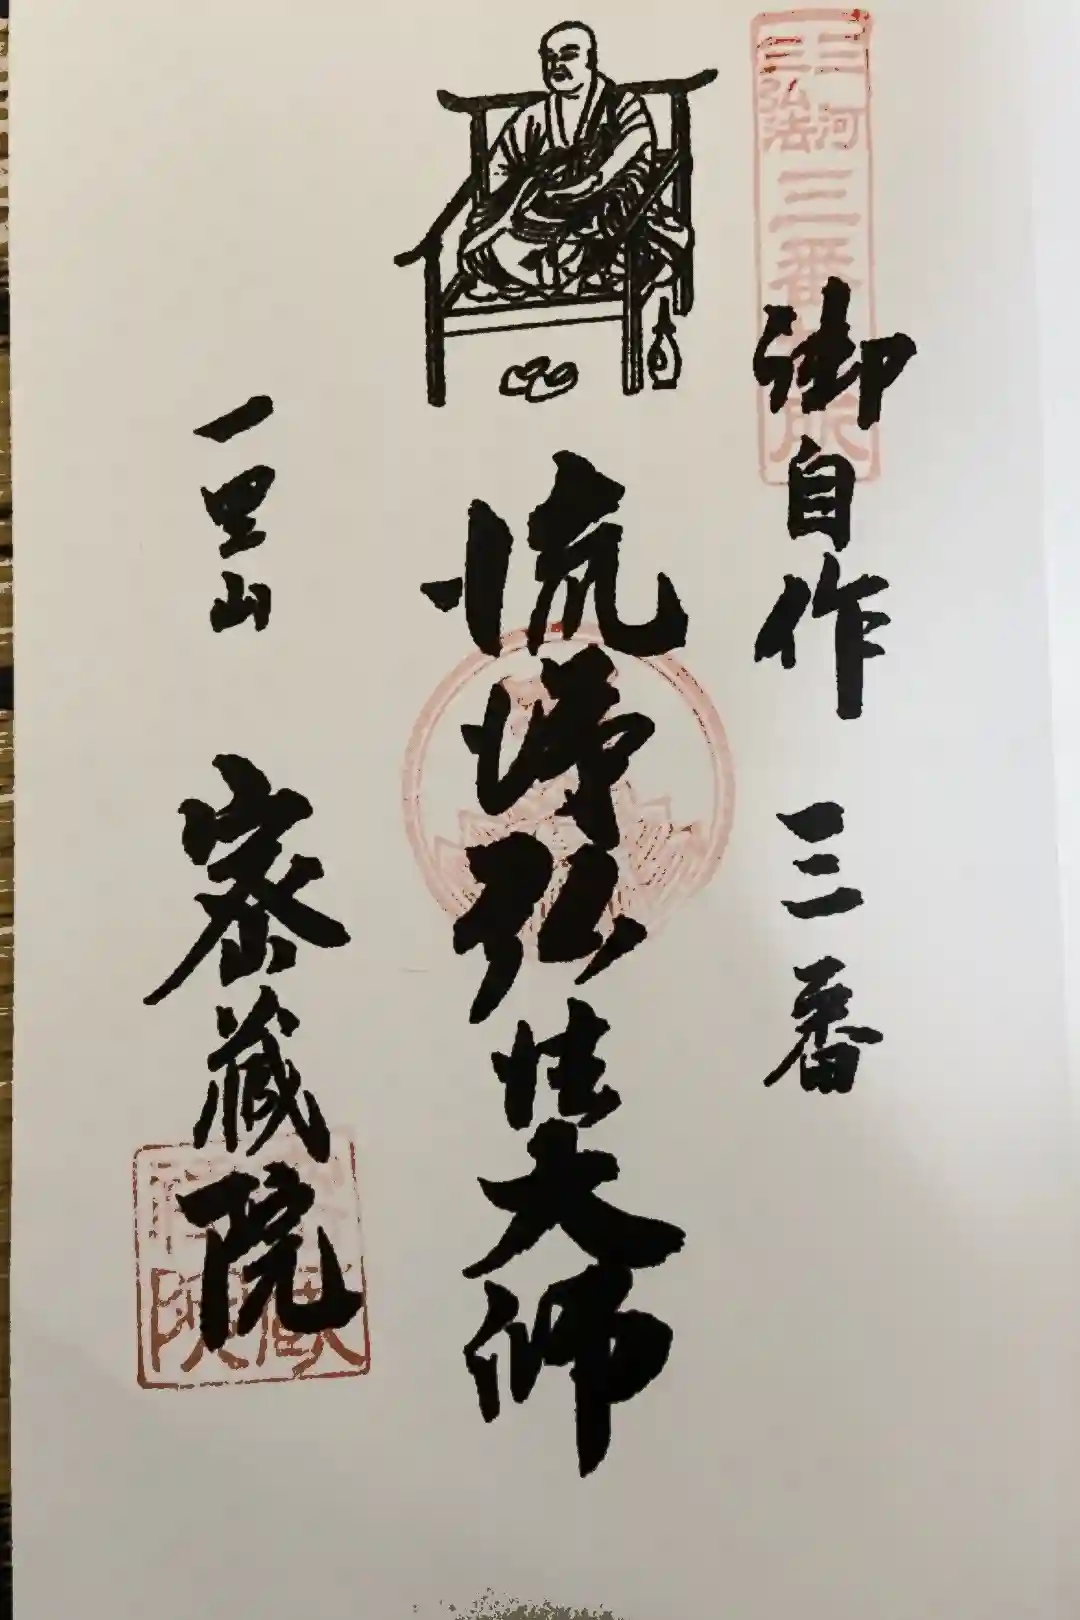 三河
三弘法
三番
御自作 三番
流涕弘法大師
一里山 密蔵院